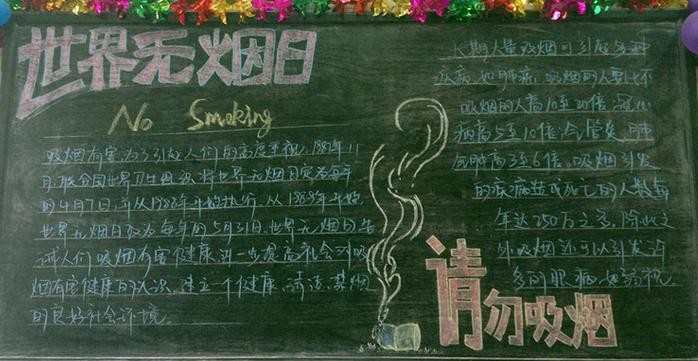 世界无烟日
No Smoking
吸烟有害,为了引起人们的高度重视,1987年11
月,联合国世界卫生组织将世界无烟日定为每年
的4月7日,并从1988年开始执行,从1989年开始
世界无烟日改为每年的5月31日,世界无烟日告
诫人们吸烟有害健康,进一步提高社会对吸
烟有害健康的认识,建立一个健康、清洁、
的良好社会环境。
长期大量吸烟可引起各种
疾病,如肺癌,吸烟的人要比不
吸烟的人高10至20倍,冠心
病高5至10倍,气管炎、肺
气肿高3至6倍。吸烟引发
的疾病造成死亡的人数每
年达250万之多,除此之
外吸烟还可以引发许
多的眼病,如弱视
请勿吸烟